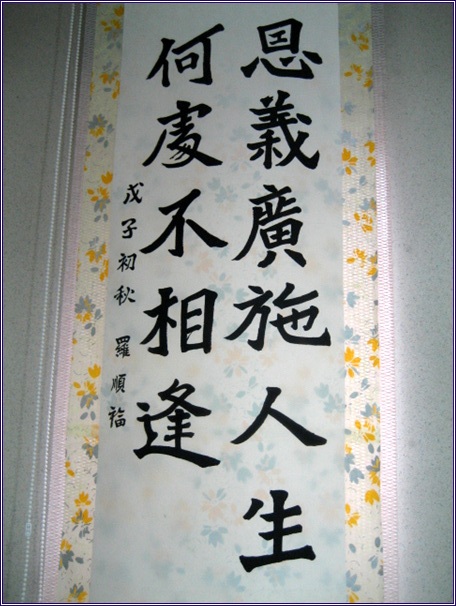 恩義廣施人生
何處不相逢
戊子初秋 羅順福